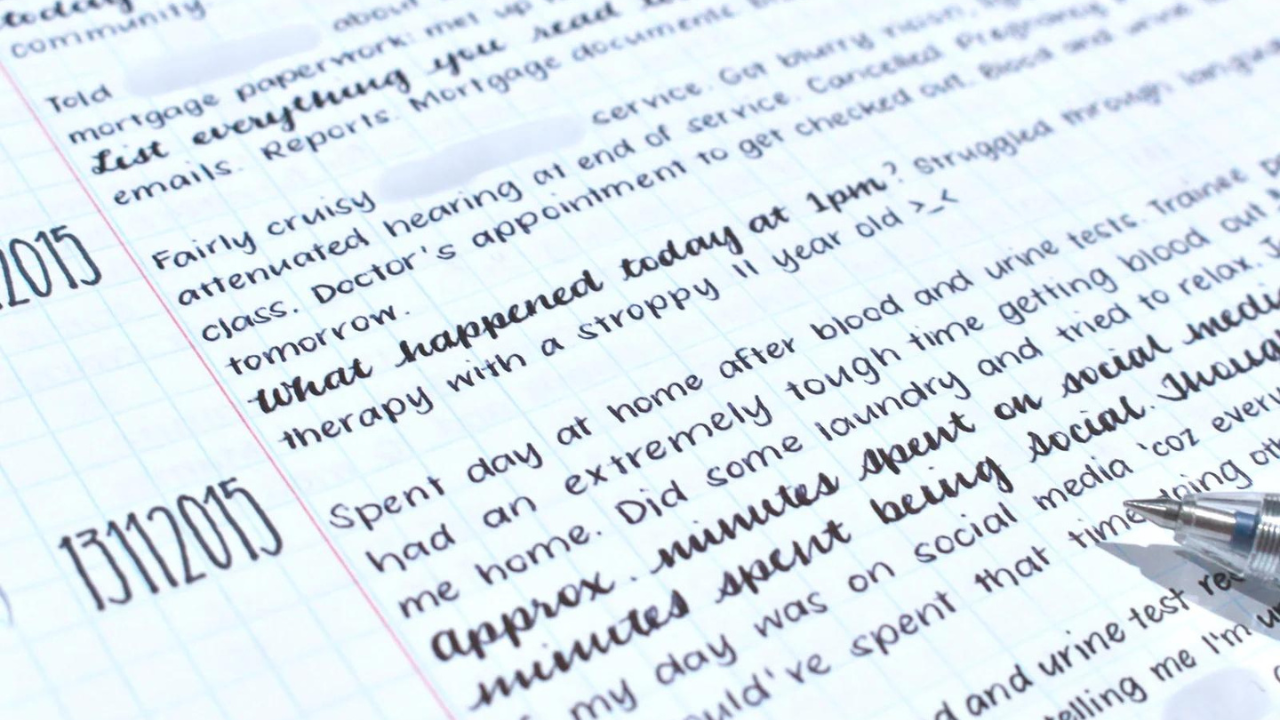 today
community.
Told about
mortgage paperwork: met up
List everything you read
emails. Reports. Mortgage documents
Fairly cruisy service. Got blurry vision,
attenuated hearing at end of service. Cancelled Pregnancy
class. Doctor's appointment to get checked out. Blood and urine
tomorrow.
2015
What happened today at 1pm? Struggled through language
therapy with a stroppy 11 year old >_<
13112015
Spent day at home after blood and urine tests. Trainee
had an extremely tough time getting blood out
me home. Did some laundry and tried to relax.
approx. minutes spent on social media
minutes spent being social. Though
my day was on social media 'coz every
spent that time doing
and urine test
telling me I'm